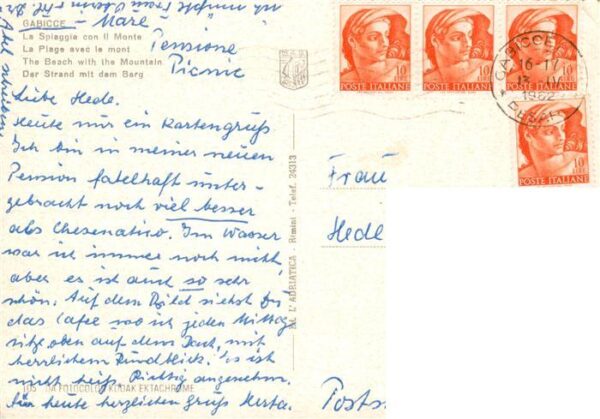 GABICCE - Mare
La Spiaggia con il Monte
La Plage avec le mont
The Beach with the Mountain
Der Strand mit dem Berg
Pensione
Picnic
Liebe Hede.
Heute nur ein Kartengruß
Ich bin in meiner neuen
Pension fabelhaft unter-
gebracht noch viel besser
als Chesenatico. Im Wasser
war ich immer noch nicht,
aber es ist auch so sehr
schön. Auf dem Bild siehst Du
das Cafee wo ich jeden Mittag
sitze oben auf dem Dach, mit
herrlichem Rundblick. Es ist
nicht heiß. Richtig angenehm.
Für heute herzlichen Gruß Herta.
105 FOTOCOLOR KODAK EKTACHROME
Ed. L'ADRIATICA - Rimini - Telef. 24313
POSTE ITALIANE
10
POSTE ITALIANE
10
POSTE ITALIANE
10
POSTE ITALIANE
10
GABICCE
16-17
13. IV
1962
Frau
Hede
Posts